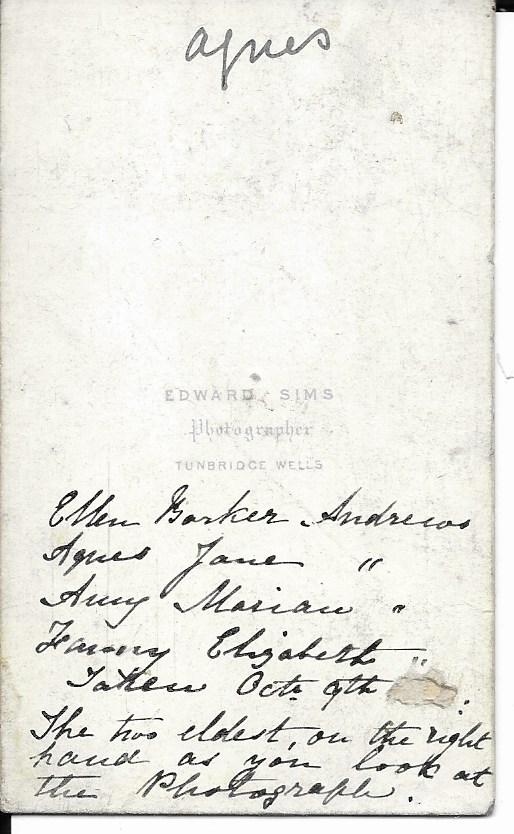 agnes
EDWARD SIMS
Photographer
TUNBRIDGE WELLS
Ellen Barker Andrews
Agnes Jane "
Amy Marian "
Fanny Elizabeth "
Taken Octr 9th
The two eldest, on the right
hand as you look at
the Photograph.